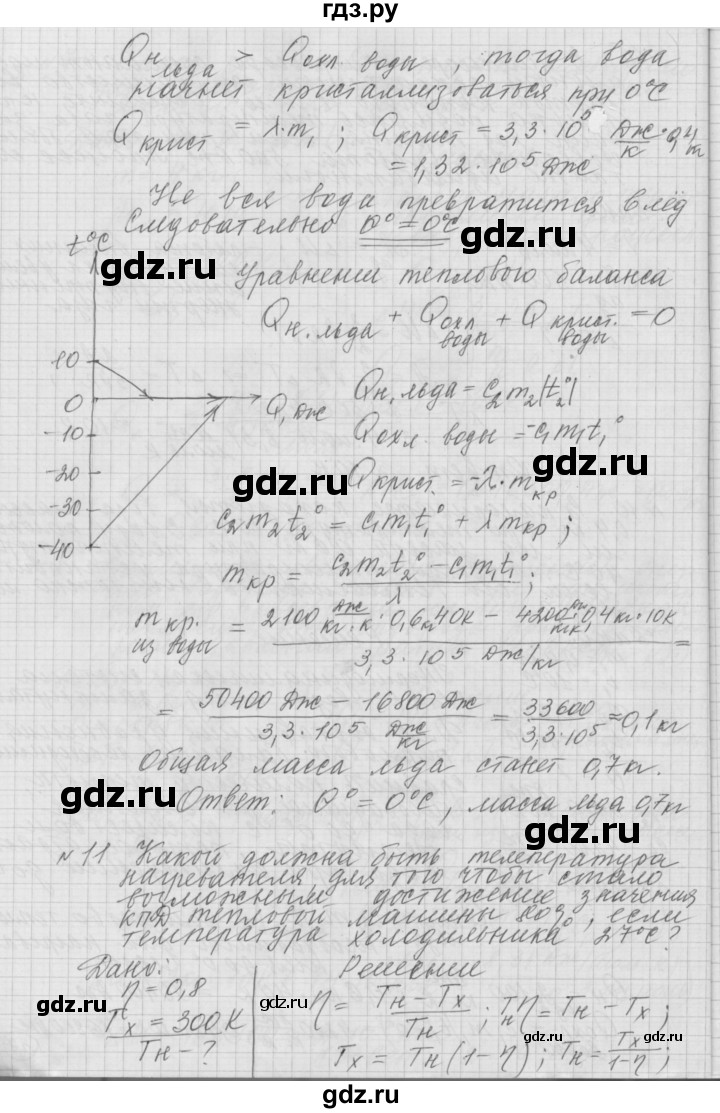 гдз.ру
Qн льда > Qохл. воды, тогда вода
начнет кристаллизоваться при 0°C
Qкрист = λ·m₁; Qкрист = 3,3·10⁵ Дж/к · 0,4
= 1,32·10⁵ Дж
Не вся вода превратится в лёд
Следовательно θ° = 0°C
gdz.ru gdz.ru
t°C
Уравнении теплового баланса
Qн.льда + Qохл воды + Qкрист. воды = 0
10
0
Q, Дж
-10
-20
-30
-40
Qн.льда = c₂m₂|t₂°|
Qохл. воды = -c₁m₁t₁°
gdz.ru gdz.ru
Qкрист. = -λ·mкр
c₂m₂t₂° = c₁m₁t₁° + λmкр;
mкр = (c₂m₂t₂° - c₁m₁t₁°)/λ;
mкр. из воды = (2100 Дж/кг·к · 0,6кг 40К - 4200 Дж/кгк · 0,4кг·10К)/(3,3·10⁵ Дж/кг) =
= (50400 Дж - 16800 Дж)/(3,3·10⁵ Дж/кг) = 33600/(3,3·10⁵) ≈ 0,1кг
Общая масса льда станет 0,7кг.
gdz.ru gdz.ru
Ответ: θ° = 0°C, масса льда 0,7кг
№11 Какой должна быть температура
нагревателя для того чтобы стало
возможным достижение значения
КПД тепловой машины 80%, если
температура холодильника 27°C?
gdz.ru gdz.ru
Дано: Решение
η = 0,8
Tх = 300К
Tн - ?
η = (Tн - Tх)/Tн; Tнη = Tн - Tх;
Tх = Tн(1-η); Tн = Tх/(1-η);
gdz.ru gdz.ru
gdz.ru